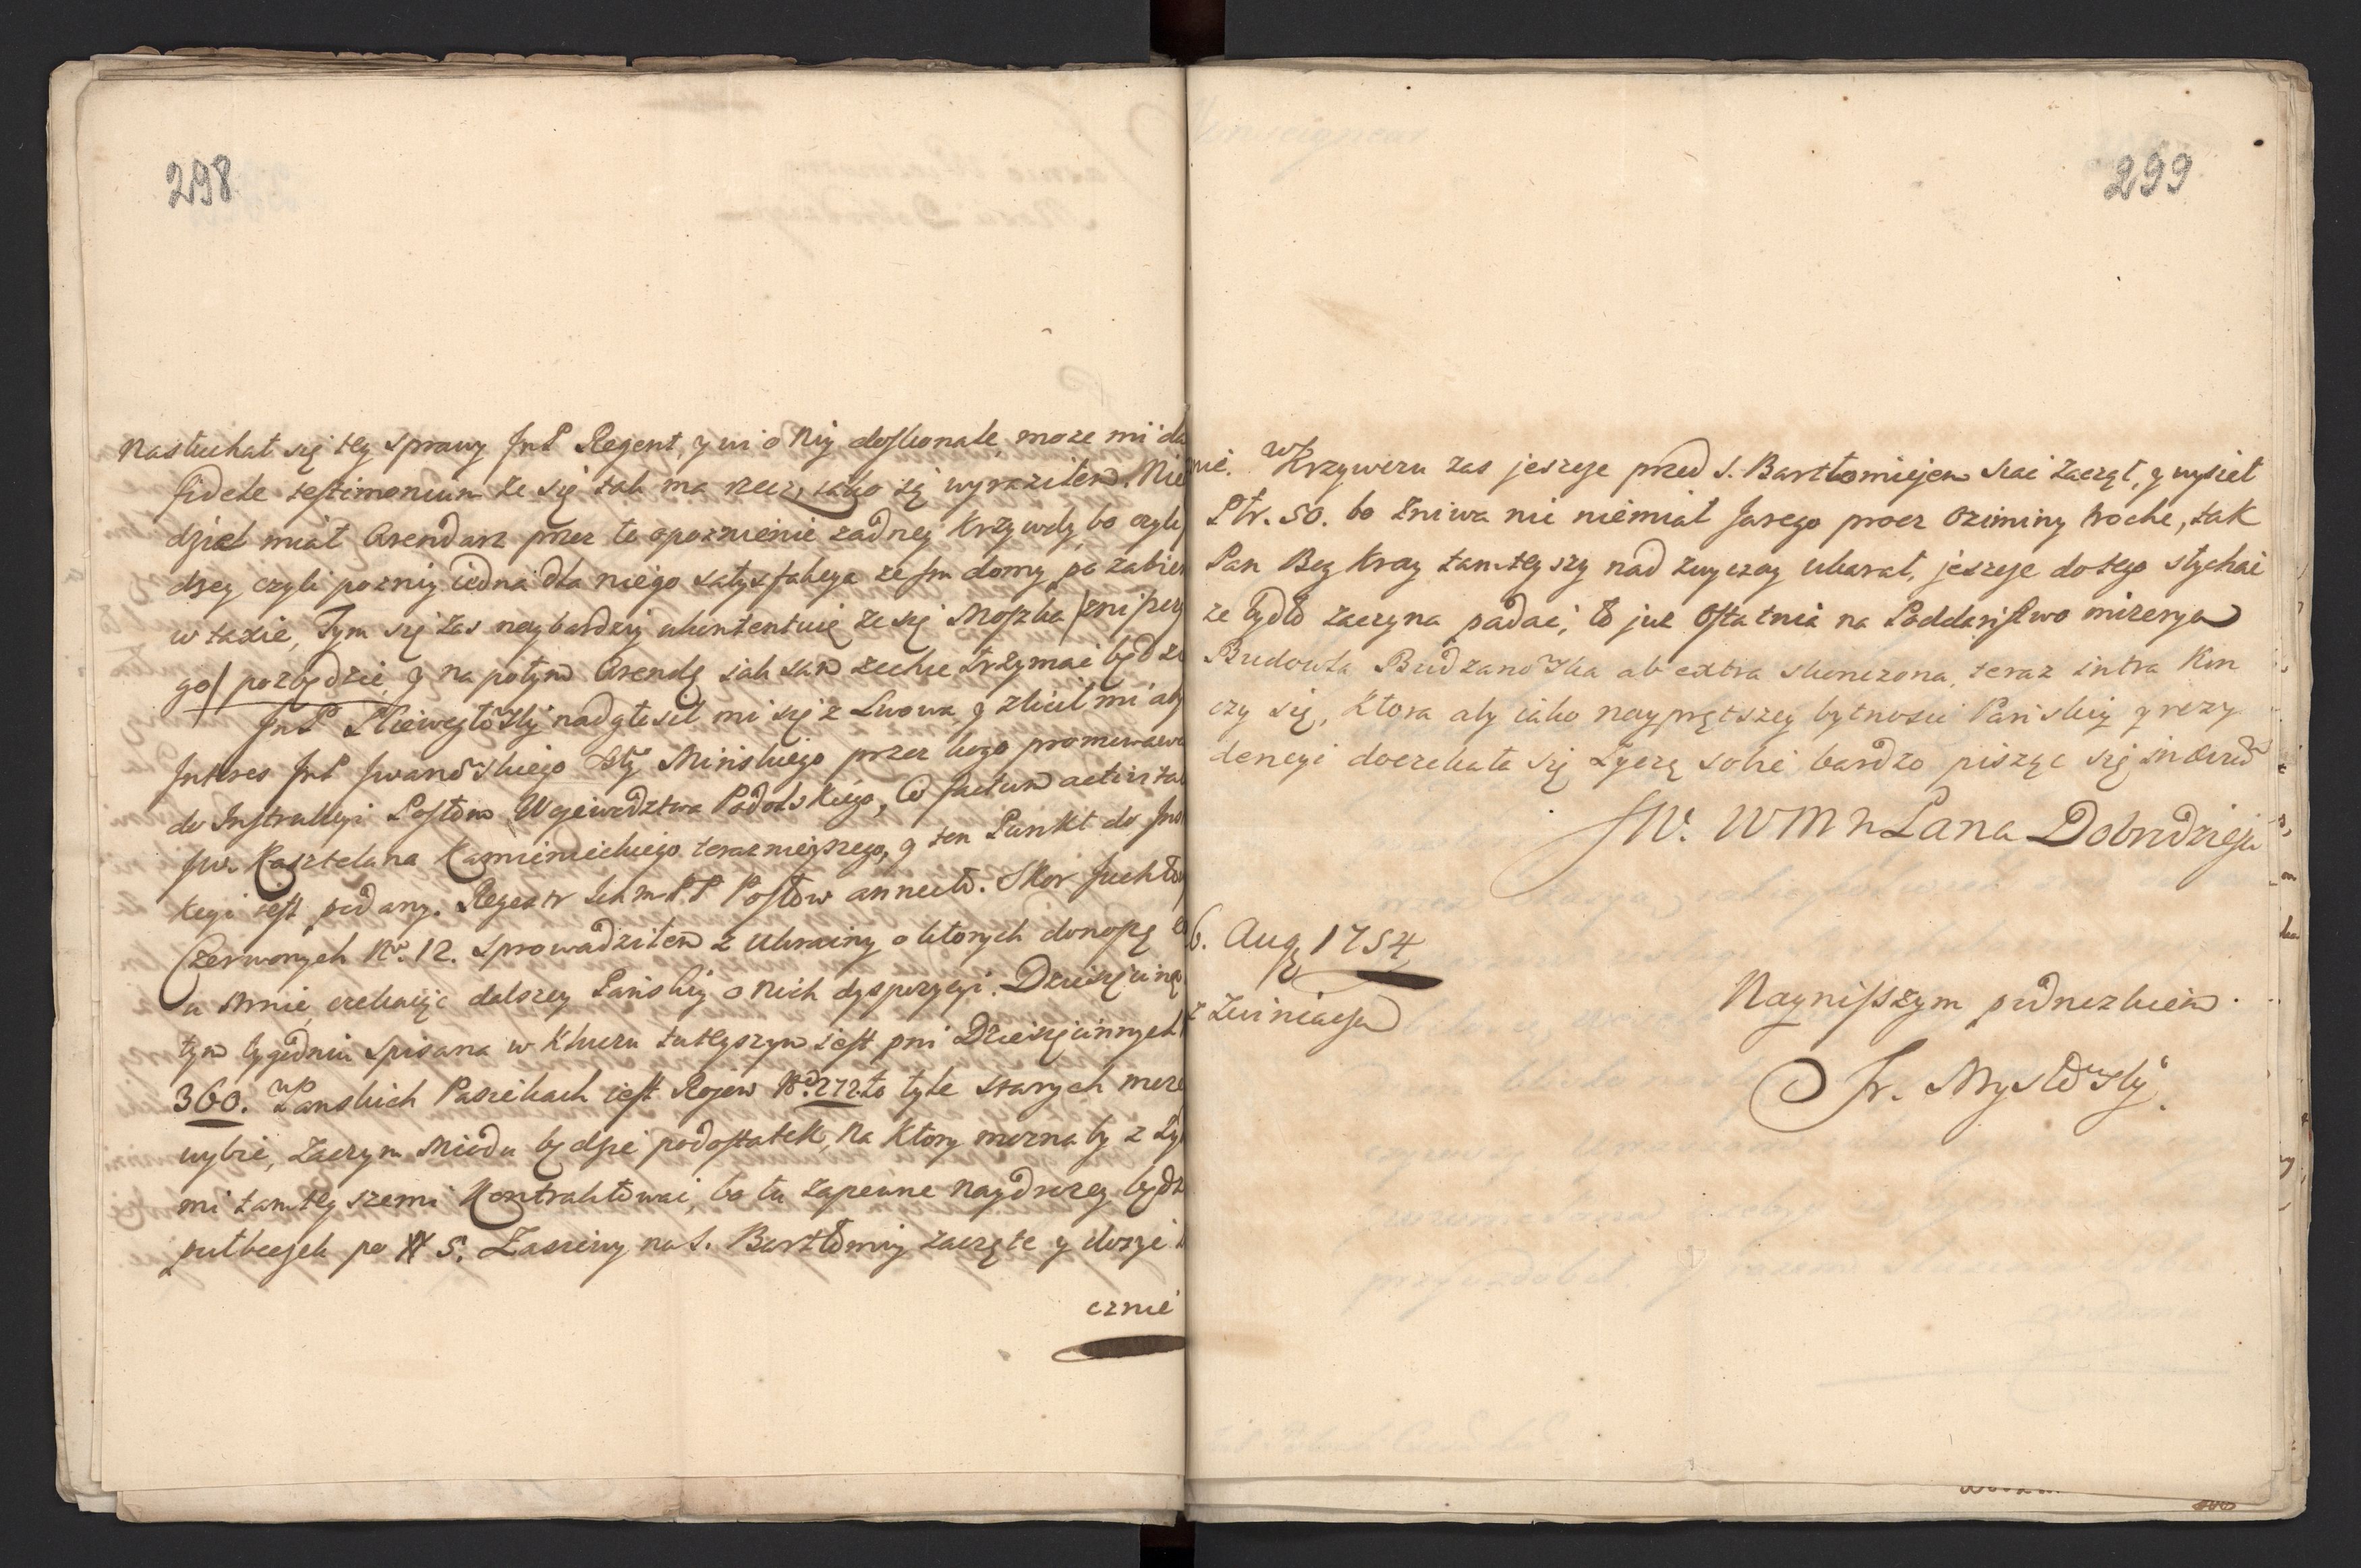 298
Nasłuchał się tey sprawy JmP Regent, y wi o Niy doskonale, moze mi da
fidele testimonium ze się tak ma rzecz, iako się wyraziłem. Nie
dział miał Arendarz przez te opoznienie zadney Krzywdy, bo czyli
dzey czyli pozniy iedna dla niego satysfakcya ze Jm domy po zabier
w taxie, Tym się zas naybardziy ukontentuię ze się Moszka
go/ pozbędzie y na potym Arendę iak sam zechce trzymać będzi
JmP nadgłosił mi się z Lwowa, y zlicił mi aby
Jnteres JmP Jwanowskiego Sty Minskiego przez kogo promowawa
do Jnstrukcyi Posłom Wojewodztwa Podolskiego, Co factum
JW. Kasztelana Kamienieckiego teraznieyszego, y ten Punkt do Jns
kcyi iest podany. Regestr IchmPP Posłow annecto. Skor Juchto
Czerwonych No. 12. sprowadziłem z Ukrainy o ktorych donoszę
u Mnie, czekaiąc dalszey Pańskiy o Nich dyspozycyi. Dziesięcina
tym tygodniu spisana w Kluczu tuteyszym iest pni Dziesięcinnych
360. w Pańskich Pasiekach iest Rojow No. 272. to tyle starych moze
wybić, Zaczym Miodu będzie podostatek, Na Ktory mozna by z Ży
mi tamteyszemi Kontraktować, bo tu zapewne Naydrozey będz
pułbeczek po # 5. Zasiewy na S. Bartłomiy zaczęte y
cznie
299
nie. w Krzywczu zas jeszcze przed S. Bartłomiejem siać zaczął, y wysiel
Ptr. 50. bo Zniwa nic niemiał Jarego procz Oziminy troche, tak
Pan Bog Kray tamteyszy nad zwyczay ukarał, jeszcze do tego słychać
ze bydło zaczyna padać, to juz Ostatnia na Poddaństwo mizerya
Budowla Budzanowska ab extra skonczona, teraz intra Kon
czy się, Ktora aby iako nayprętszey bytności Pańskiy y rezy
dencyi doczekała się Zyczę sobie bardzo pisząc się
JW. WMM Pana Dobrodzieja
6. Aug 1754
z Zwiniacza
Nayniszszym podnozkiem.
Fr. Mysłowsky.